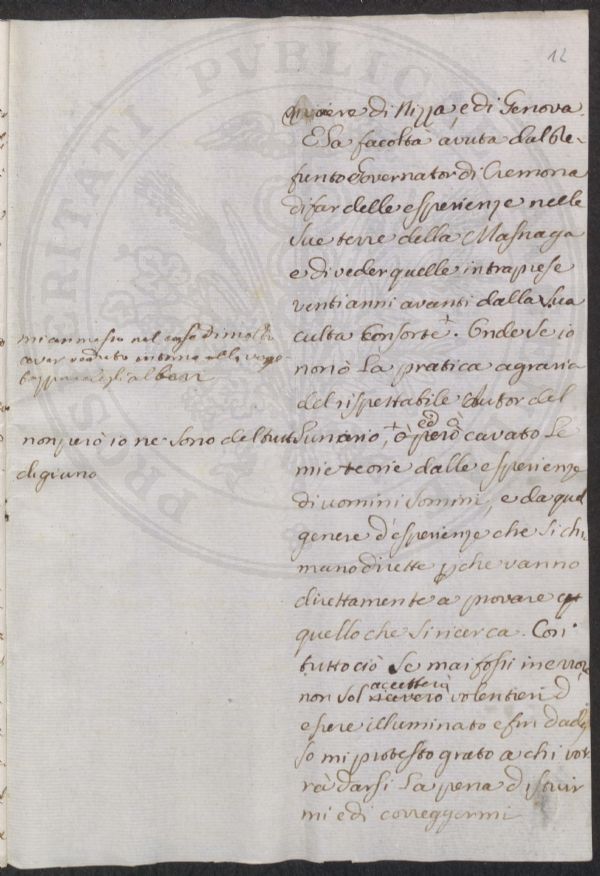 12
riviere di Nizza, e di Genova.
E la facoltà avuta dal De-
funto Governator di Cremona
di far delle esperienze nelle
sue terre della Masnaga
e di veder quelle intraprese
venti anni avanti dalla sua
culta Consorte. Onde se io
non ò la pratica agraria
del rispettabile Autor del
Lunario, + ò però ed cavato le
mie teorie dalle esperienze
di uomini sommi, e da quel
genere d'esperienze che si chi-
mano dirette pche vanno
direttamente a provare
quello che si ricerca. Con
tuttociò se mai fossi in errore
non sol accetterò volentieri d'
essere illuminato e fin d'ades
so mi protesto grato a chi vor
rà darsi la pena d'istruir
mi e di correggermi
nel caso di molto
aver veduto intorno alla
degli alberi
non però io ne sono del tutto
digiuno
PROSPERITATI PVBLICAE